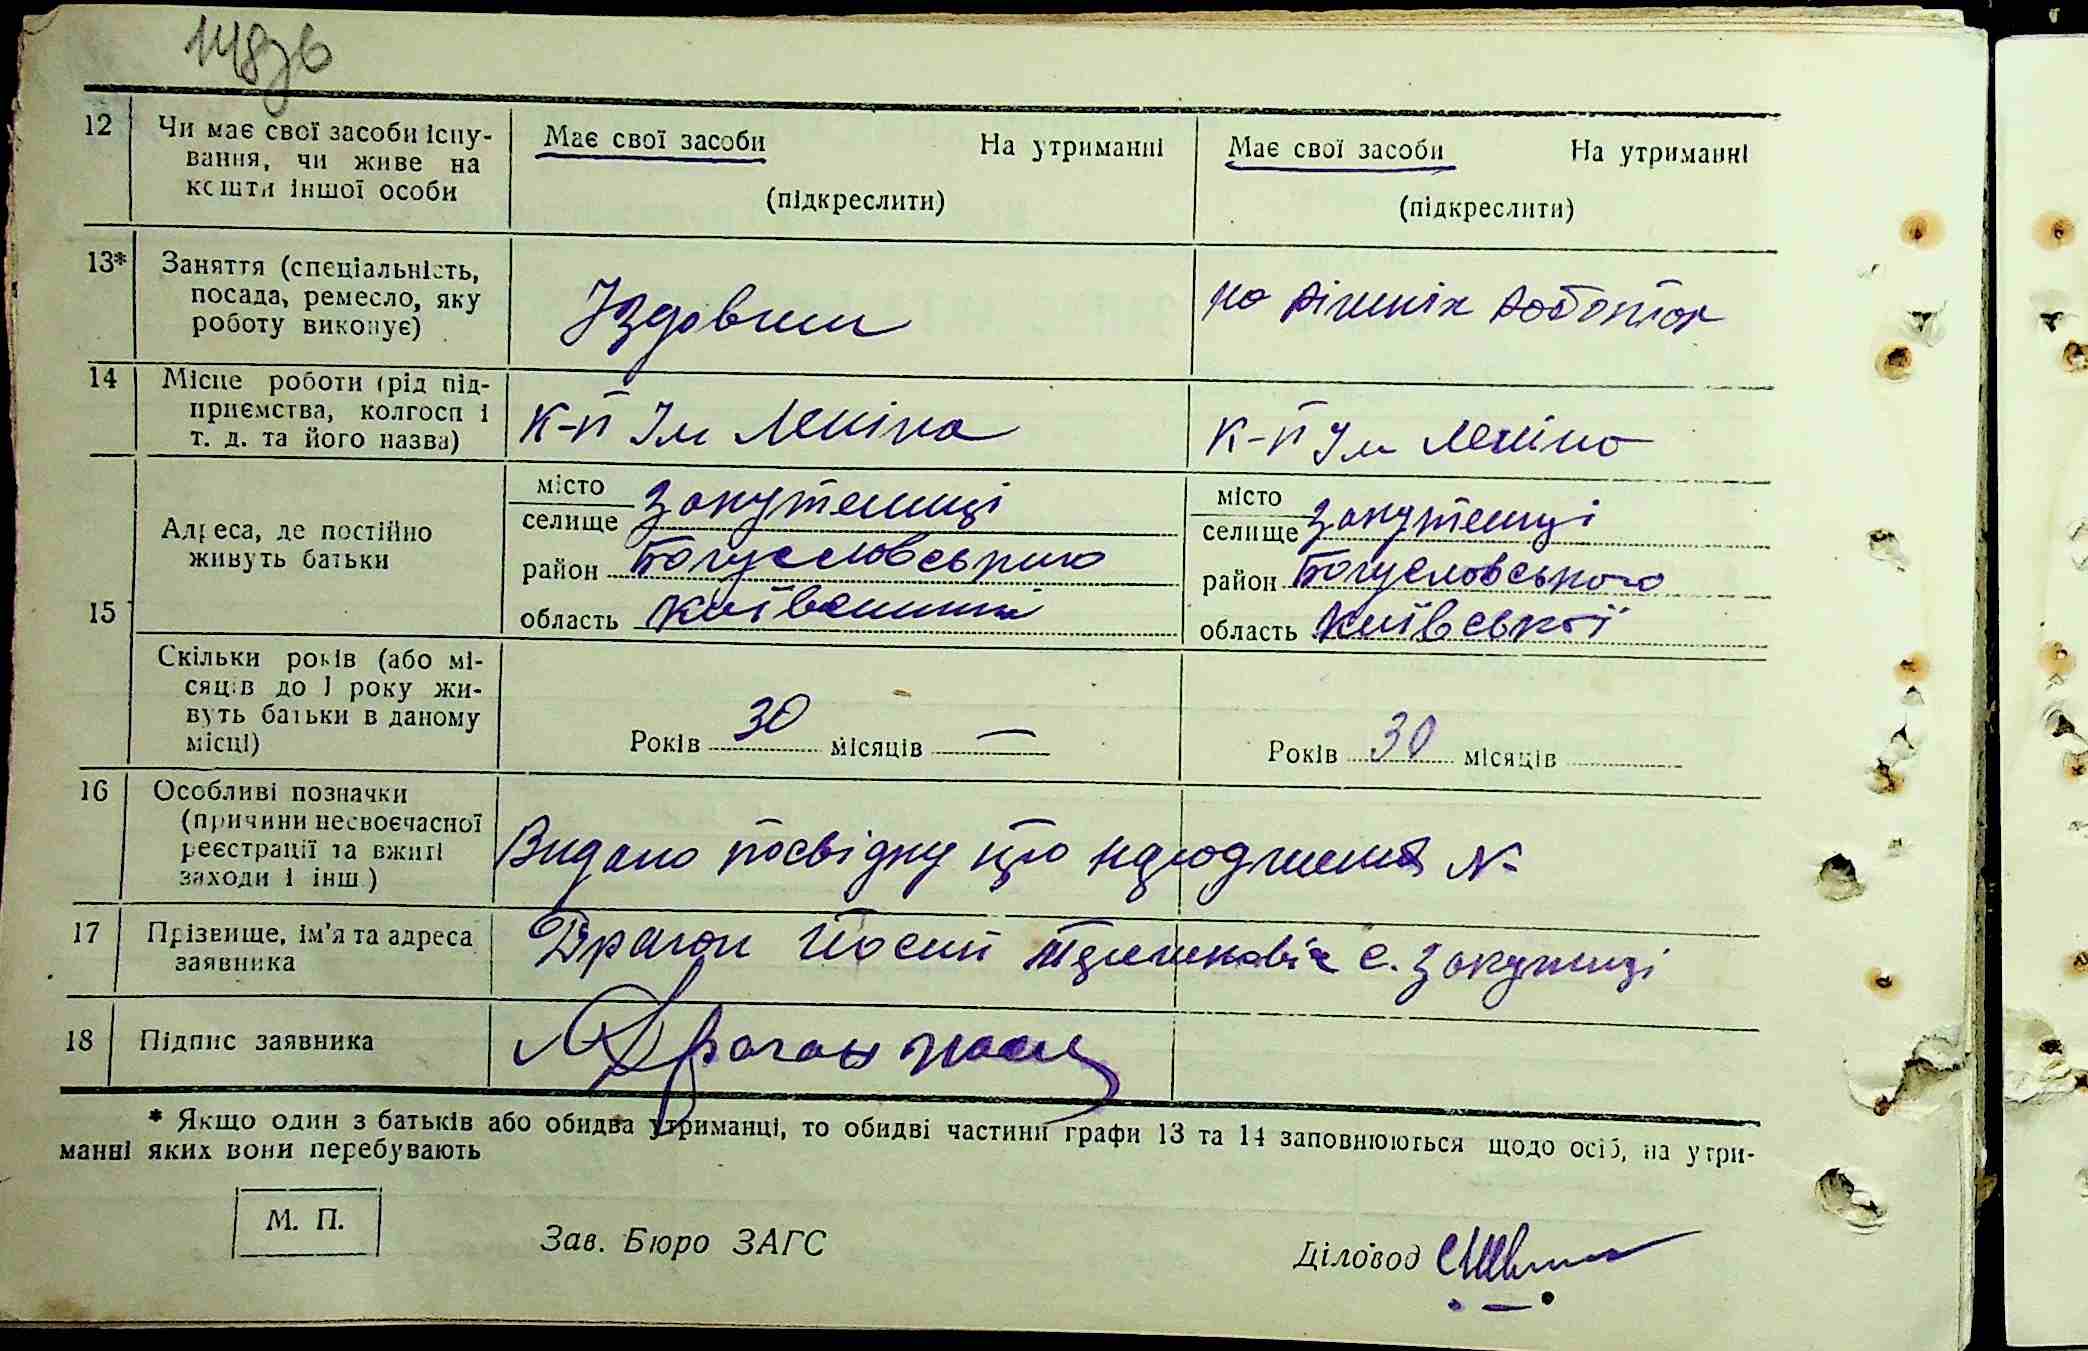 12 Чи має свої засоби існу-
вання, чи живе на
кошти іншої особи
Має свої засоби На утриманні
(підкреслити)
Має свої засоби На утриманні
(підкреслити)
13* Заняття (спеціальність,
посада, ремесло, яку
роботу виконує)
Їздовий
на різних роботах
14 Місце роботи (рід під-
приємства, колгосп і
т. д. та його назва)
К-п Ім Леніна
К-п Ім Леніна
15 Адреса, де постійно
живуть батьки
місто
селище Закутенці
район Богуславського
область Київської
місто
селище Закутенці
район Богуславського
область Київської
Скільки років (або мі-
сяців до 1 року жи-
вуть батьки в даному
місці)
Років 30 місяців —
Років 30 місяців
16 Особливі позначки
(причини несвоєчасної
реєстрації та вжиті
заходи і інш.)
Видано посвідку про народження №
17 Прізвище, ім'я та адреса
заявника
Драган Йосип с. Закутинці
18 Підпис заявника
Драган
* Якщо один з батьків або обидва утриманці, то обидві частини графи 13 та 14 заповнюються щодо осіб, на утри-
манні яких вони перебувають
М. П.
Зав. Бюро ЗАГС
Діловод